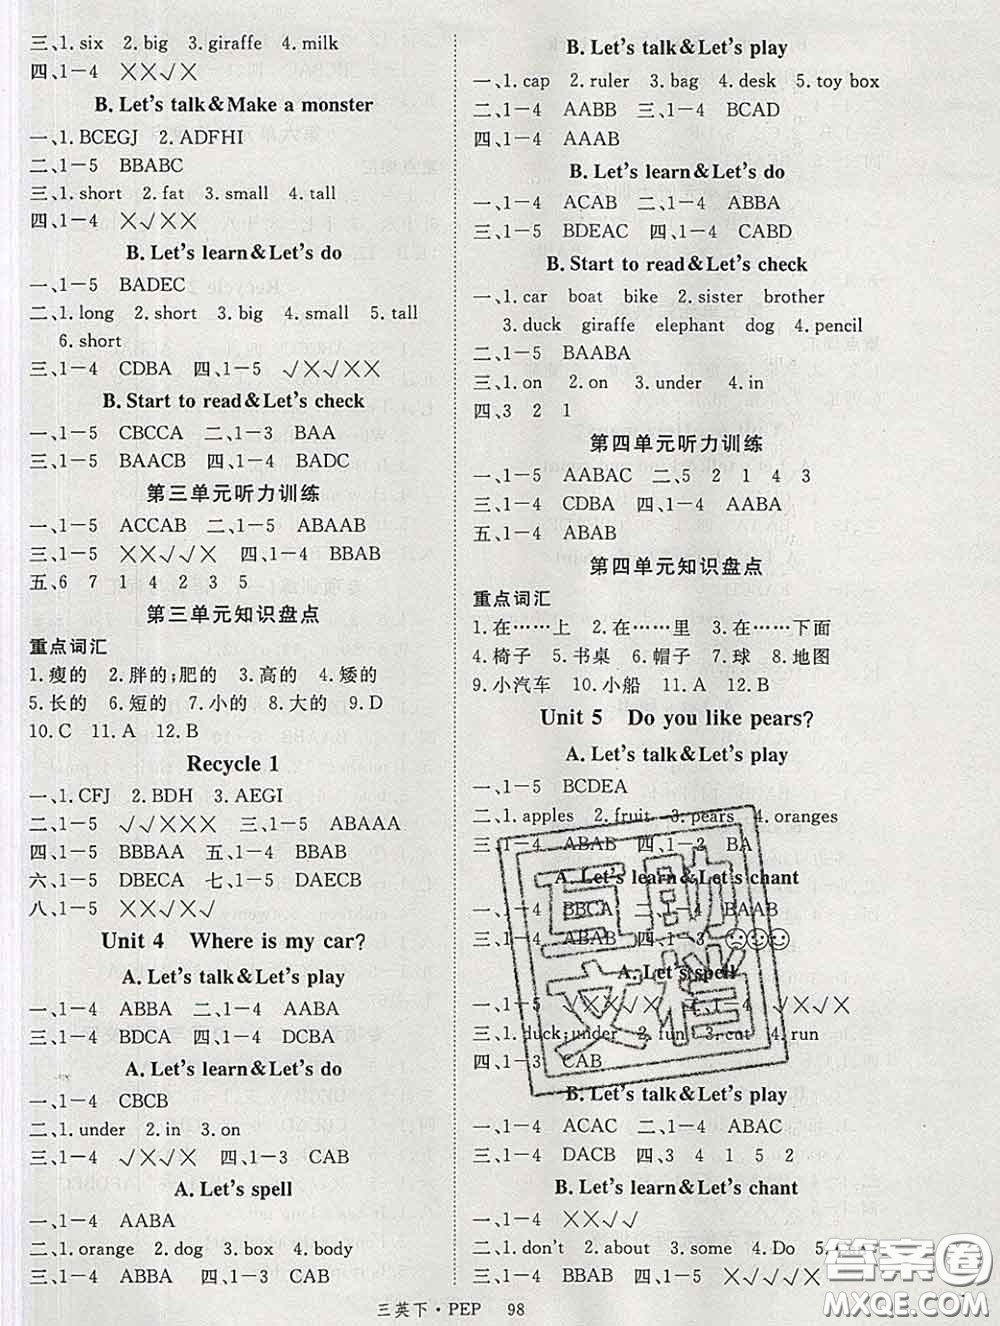 三、1. six 2. big 3. giraffe 4. milk
四、1－4 ✕✕√✕
B. Let's talk&Make a monster
一、1. BCEGJ 2. ADFHI
二、1－5 BBABC
三、1. short 2. fat 3. small 4. tall
四、1－4 ✕√✕✕
B. Let's learn&Let's do
一、1－5 BADEC
二、1. long 2. short 3. big 4. small 5. tall
6. short
三、1－4 CDBA 四、1－5 √✕√✕✕
B. Start to read&Let's check
一、1－5 CBCCA 二、1－3 BAA
三、1－5 BAACB 四、1－4 BADC
第三单元听力训练
一、1－5 ACCAB 二、1－5 ABAAB
三、1－5 ✕✕√√✕ 四、1－4 BBAB
五、6 7 1 4 2 3 5
第三单元知识盘点
重点词汇
1. 瘦的 2. 胖的;肥的 3. 高的 4. 矮的
5. 长的 6. 短的 7. 小的 8. 大的 9. D
10. C 11. A 12. B
Recycle 1
一、1. CFJ 2. BDH 3. AEGI
二、1－5 √√✕✕✕ 三、1－5 ABAAA
四、1－5 BBBAA 五、1－4 BBAB
六、1－5 DBECA 七、1－5 DAECB
八、1－5 ✕✕√✕√
Unit 4 Where is my car?
A. Let's talk&Let's play
一、1－4 ABBA 二、1－4 AABA
三、1－4 BDCA 四、1－4 DCBA
A. Let's learn&Let's do
一、1－4 CBCB
二、1. under 2. in 3. on
三、1－4 √✕√✕ 四、1－3 CAB
A. Let's spell
一、1－4 AABA
二、1. orange 2. dog 3. box 4. body
三、1－4 ABBA 四、1－3 CAB
B. Let's talk&Let's play
一、1. cap 2. ruler 3. bag 4. desk 5. toy box
二、1－4 AABB 三、1－4 BCAD
四、1－4 AAAB
B. Let's learn&Let's do
一、1－4 ACAB 二、1－4 ABBA
三、1－5 BDEAC 四、1－4 CABD
B. Start to read&Let's check
一、1. car boat bike 2. sister brother
3. duck giraffe elephant dog 4. pencil
二、1－5 BAABA
三、1. on 2. on 3. under 4. in
四、3 2 1
第四单元听力训练
一、1－5 AABAC 二、5 2 1 4 3
三、1－4 CDBA 四、1－4 AABA
五、1－4 ABAB
第四单元知识盘点
重点词汇
1. 在……上 2. 在……里 3. 在……下面
4. 椅子 5. 书桌 6. 帽子 7. 球 8. 地图
9. 小汽车 10. 小船 11. A 12. B
Unit 5 Do you like pears?
A. Let's talk&Let's play
一、1－5 BCDEA
二、1. apples 2. fruit 3. pears 4. oranges
三、1－4 ABAB 四、1－2 BA
A. Let's learn&Let's chant
一、1－4 BBCA 二、1－4 BAAB
三、1－4 ABAB 四、1－3 ☹☺☺
A. Let's spell
一、1－5 √✕√✕√ 二、1－4 √✕√✕
三、1. duck;under 2. fun 3. cut 4. run
四、1－3 CAB
B. Let's talk&Let's play
一、1－4 ACAC 二、1－4 ABAC
三、1－4 DACB 四、3 4 1 5 2
B. Let's learn&Let's chant
一、1－4 ✕✕√√
二、1. don't 2. about 3. some 4. Do
三、1－4 BBAB 四、1－4
三英下·PEP 98
互助文档
答案圈
MXQE.COM